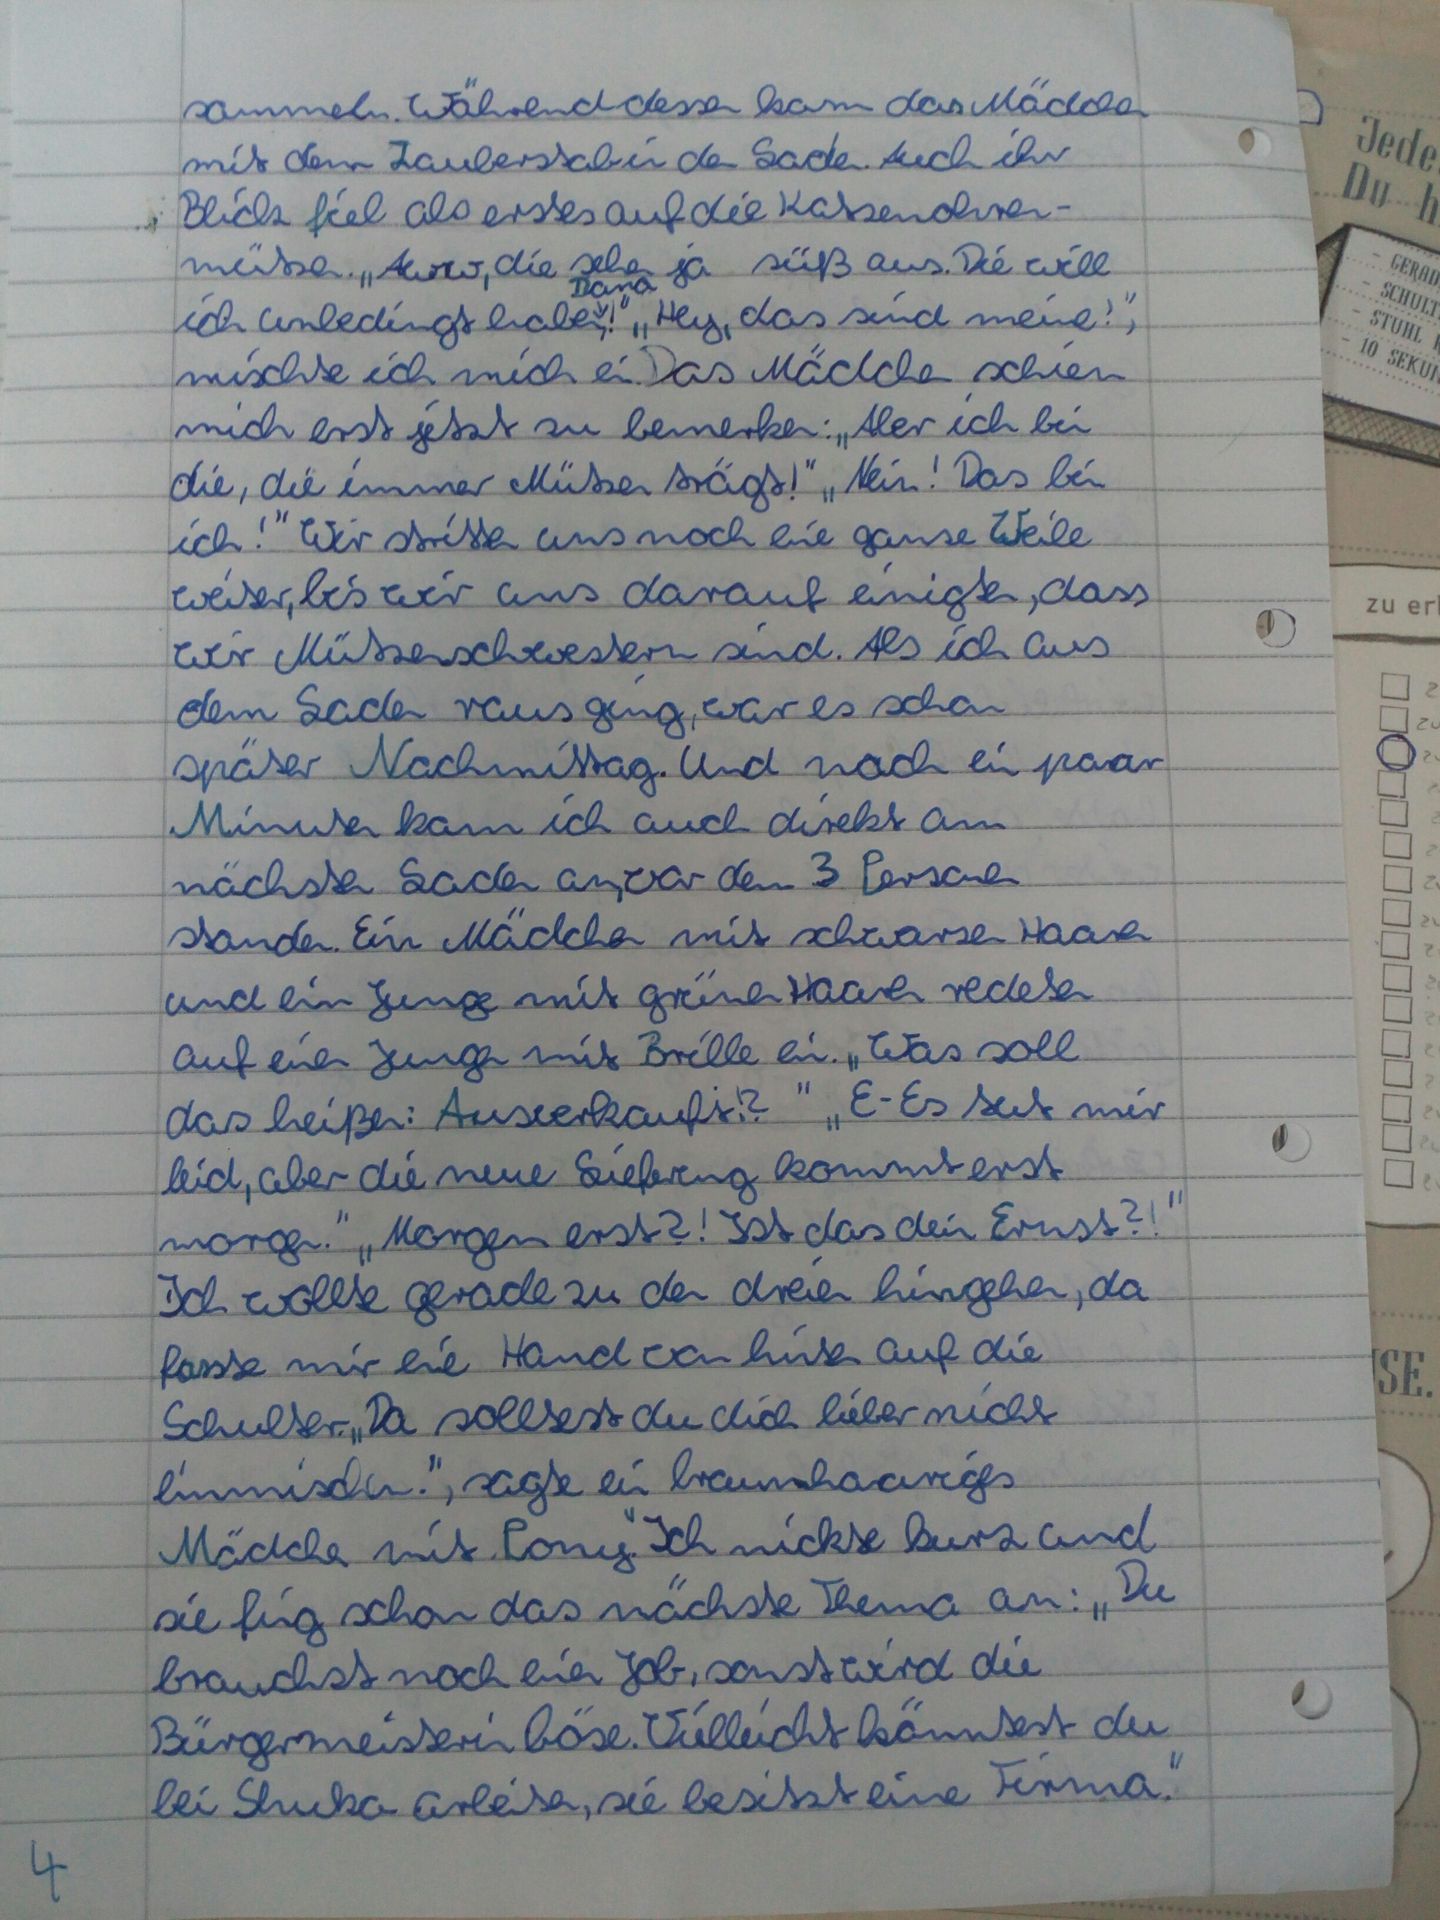 sammeln. Währenddessen kam das Mädchen
mit dem Zauberstab in den Laden. Auch ihr
Blick fiel als erstes auf die Katzenohren-
mützen. „Awww, die sehen ja süß aus. Die will
ich unbedingt haben, Dana!" „Hey, das sind meine!",
mischte ich mich ein. Das Mädchen schien
mich erst jetzt zu bemerken: „Aber ich bin
die, die immer Mützen trägt!" „Nein! Das bin
ich!" Wir stritten uns noch eine ganze Weile
weiter, bis wir uns darauf einigten, dass
wir Mützenschwestern sind. Als ich aus
dem Laden raus ging, war es schon
später Nachmittag. Und nach ein paar
Minuten kam ich auch direkt am
nächsten Laden an, vor dem 3 Personen
standen. Ein Mädchen mit schwarzen Haaren
und ein Junge mit grünen Haaren redeten
auf einen Jungen mit Brille ein. „Was soll
das heißen: Ausverkauft!?" „E-Es tut mir
leid, aber die neue Lieferung kommt erst
morgen." „Morgen erst?! Ist das dein Ernst?!"
Ich wollte gerade zu den dreien hingehen, da
fasste mir eine Hand von hinten auf die
Schulter. „Da solltest du dich lieber nicht
einmischen.", sagte ein braunhaariges
Mädchen mit Pony. Ich nickte kurz und
sie fing schon das nächste Thema an: „Du
brauchst noch einen Job, sonst wird die
Bürgermeisterin böse. Vielleicht könntest du
bei Shuka arbeiten, sie besitzt eine Firma."
4
Jede
Du h
- GERAD
- SCHULT
- STUHL
- 10 SEKUN
zu erl
USE.